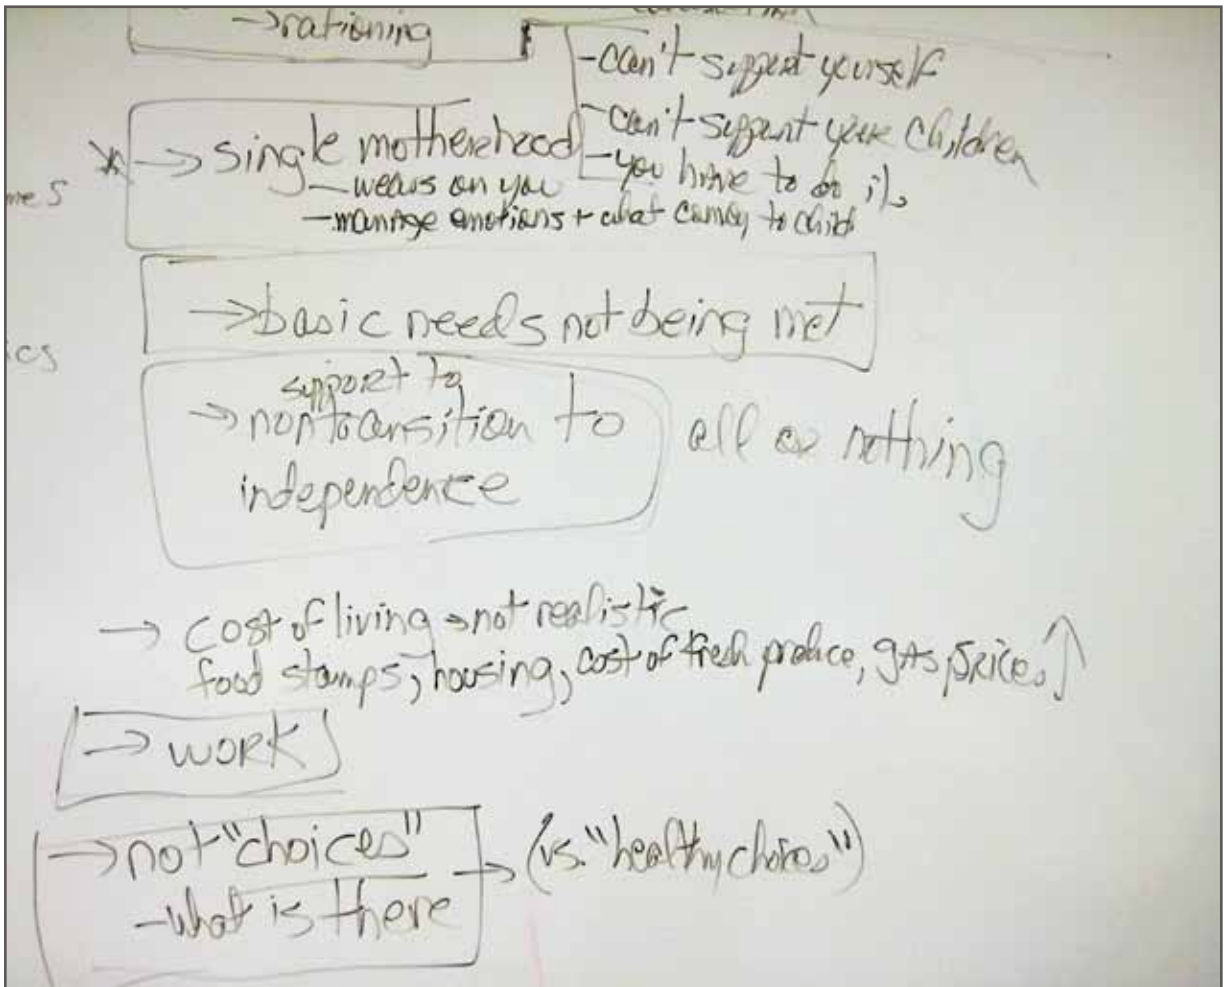 →rationing
-can't support yourself
-can't support your children
-you have to do it
→ single motherhood
-wears on you
-manage emotions + what comes to child
→basic needs not being met
support to
→non transition to
independence
all or nothing
→ cost of living → not realistic
food stamps, housing, cost of fresh produce, gas prices ↑
→ WORK
→not "choices" → (vs. "healthy choices")
-what is there